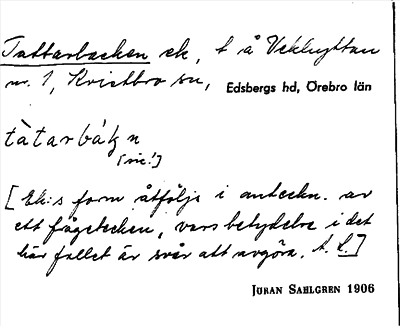 Tattarbacken ek, t å Vekhyttan
nr. 1, Kvistbro sn, Edsbergs hd, Örebro län
tàtarbák̩n
[sic!]
[Ek:s form åtföljs i anteckn. av
ett frågetecken, vars betydelse i det
här fallet är svår att avgöra. A. L.]
JÖRAN SAHLGREN 1906